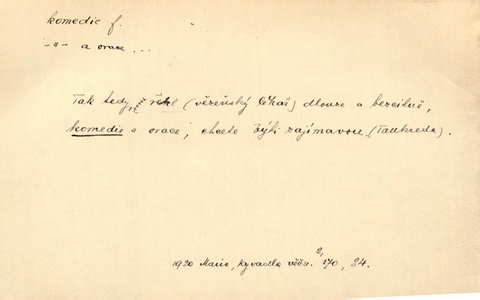 komedie f.
-"- a orace ...
Tak tedy, řekl (vězeňský lékař) dlouze a bezcitně,
komedie a orace, chcete býti zajímavou. (Tankreda).
1920 Maria, Kyvadlo věčn. 2, 170, 24.